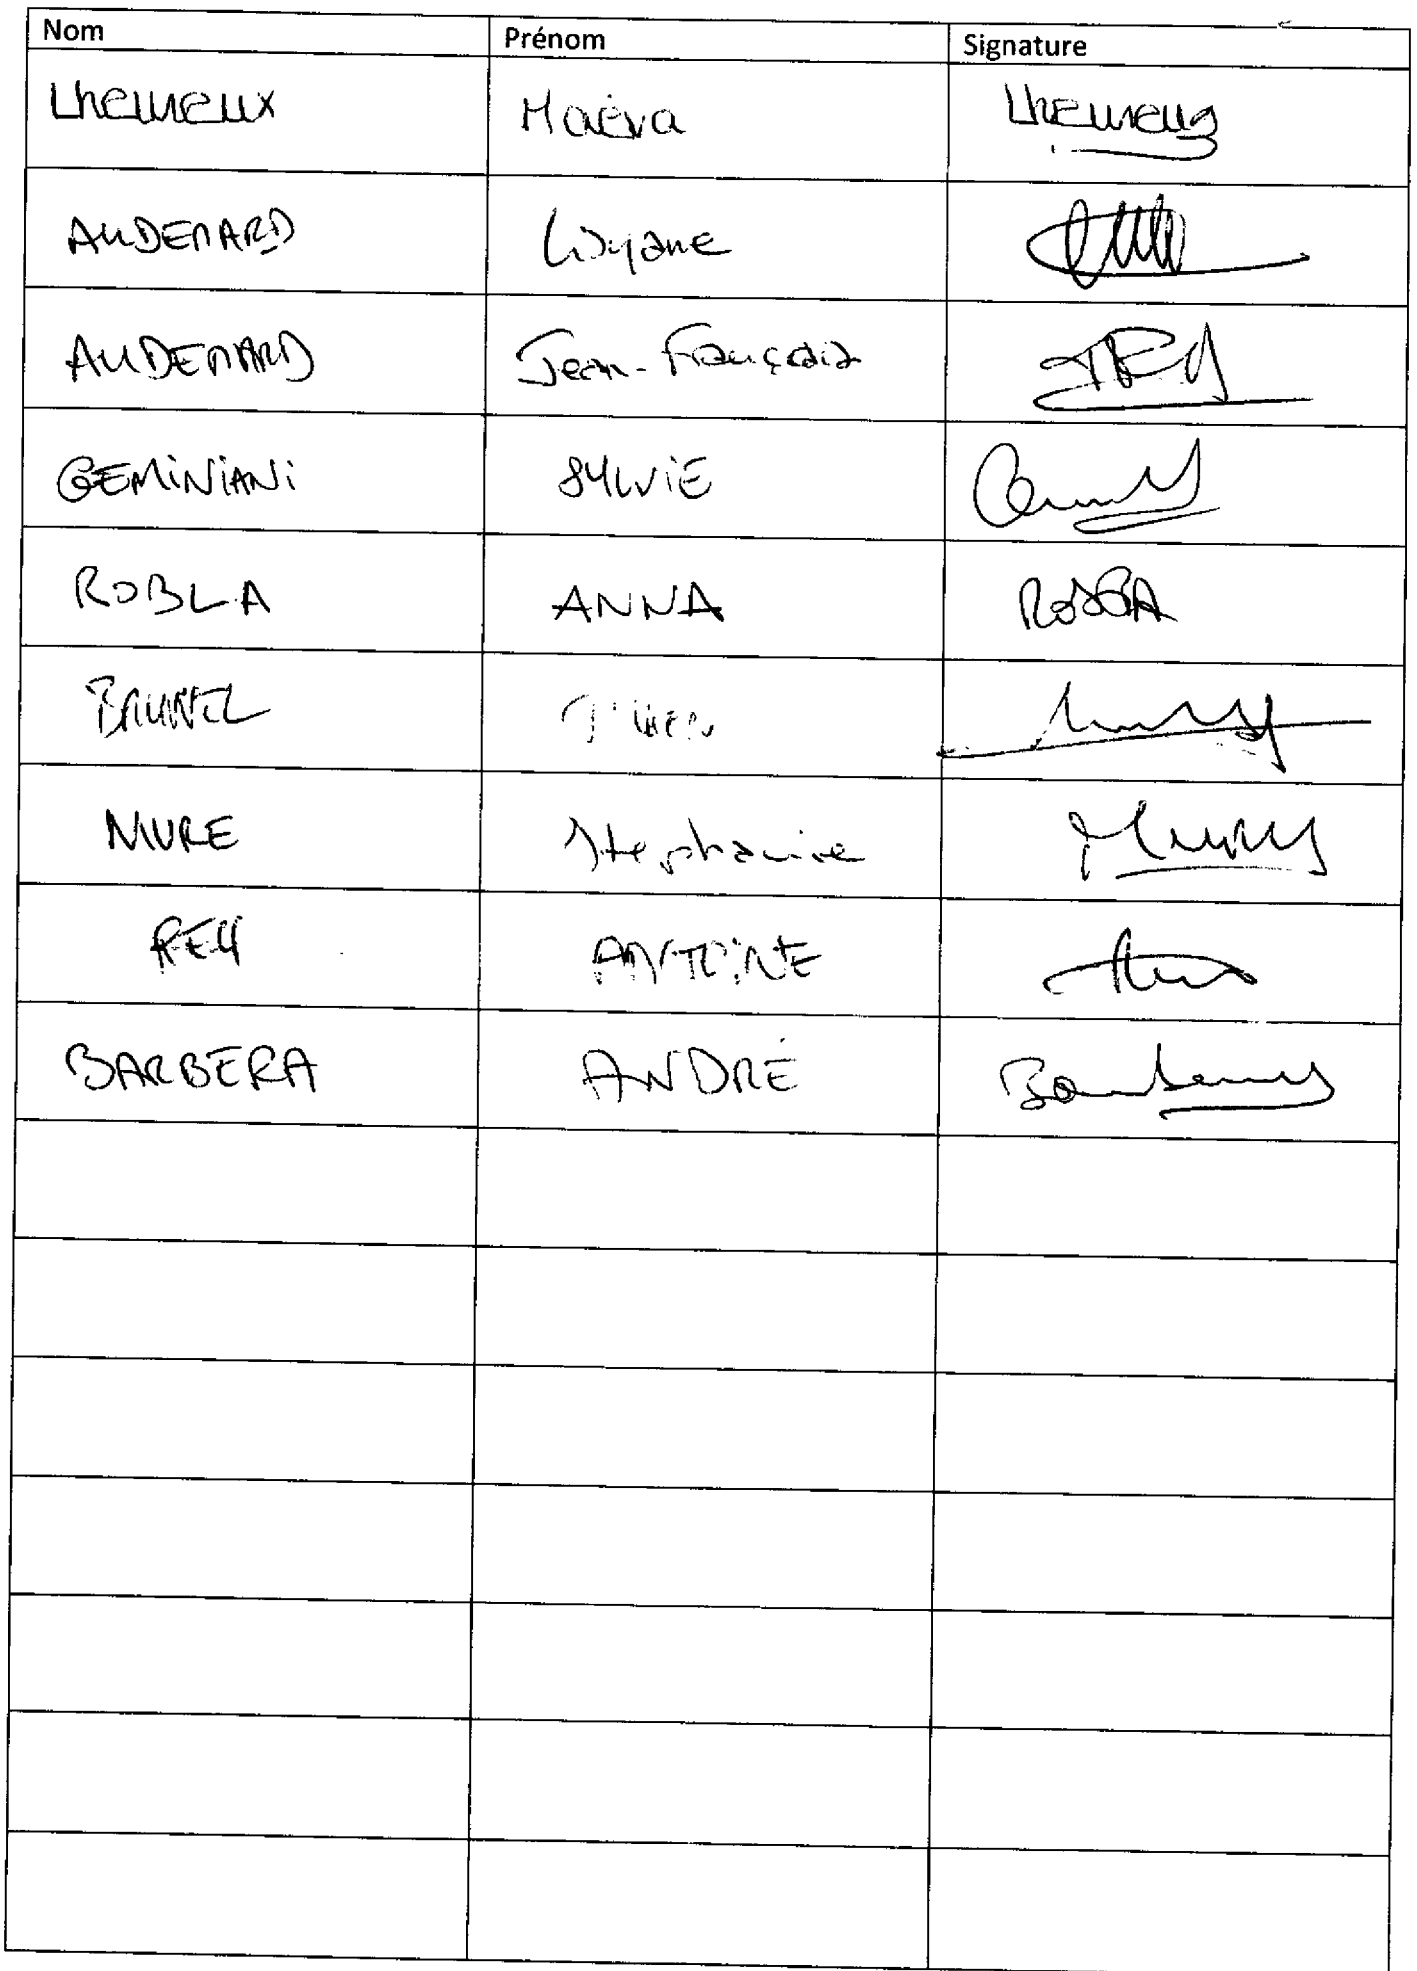 Nom Prénom Signature
Lheureux Maéva Lheureux
AUDEMARD
AUDEMARD Jean-François
GEMINIANI SYLVIE
ROBLA ANNA
BRUNEL
MURE Stephanie
REY ANTOINE
BARBERA ANDRÉ